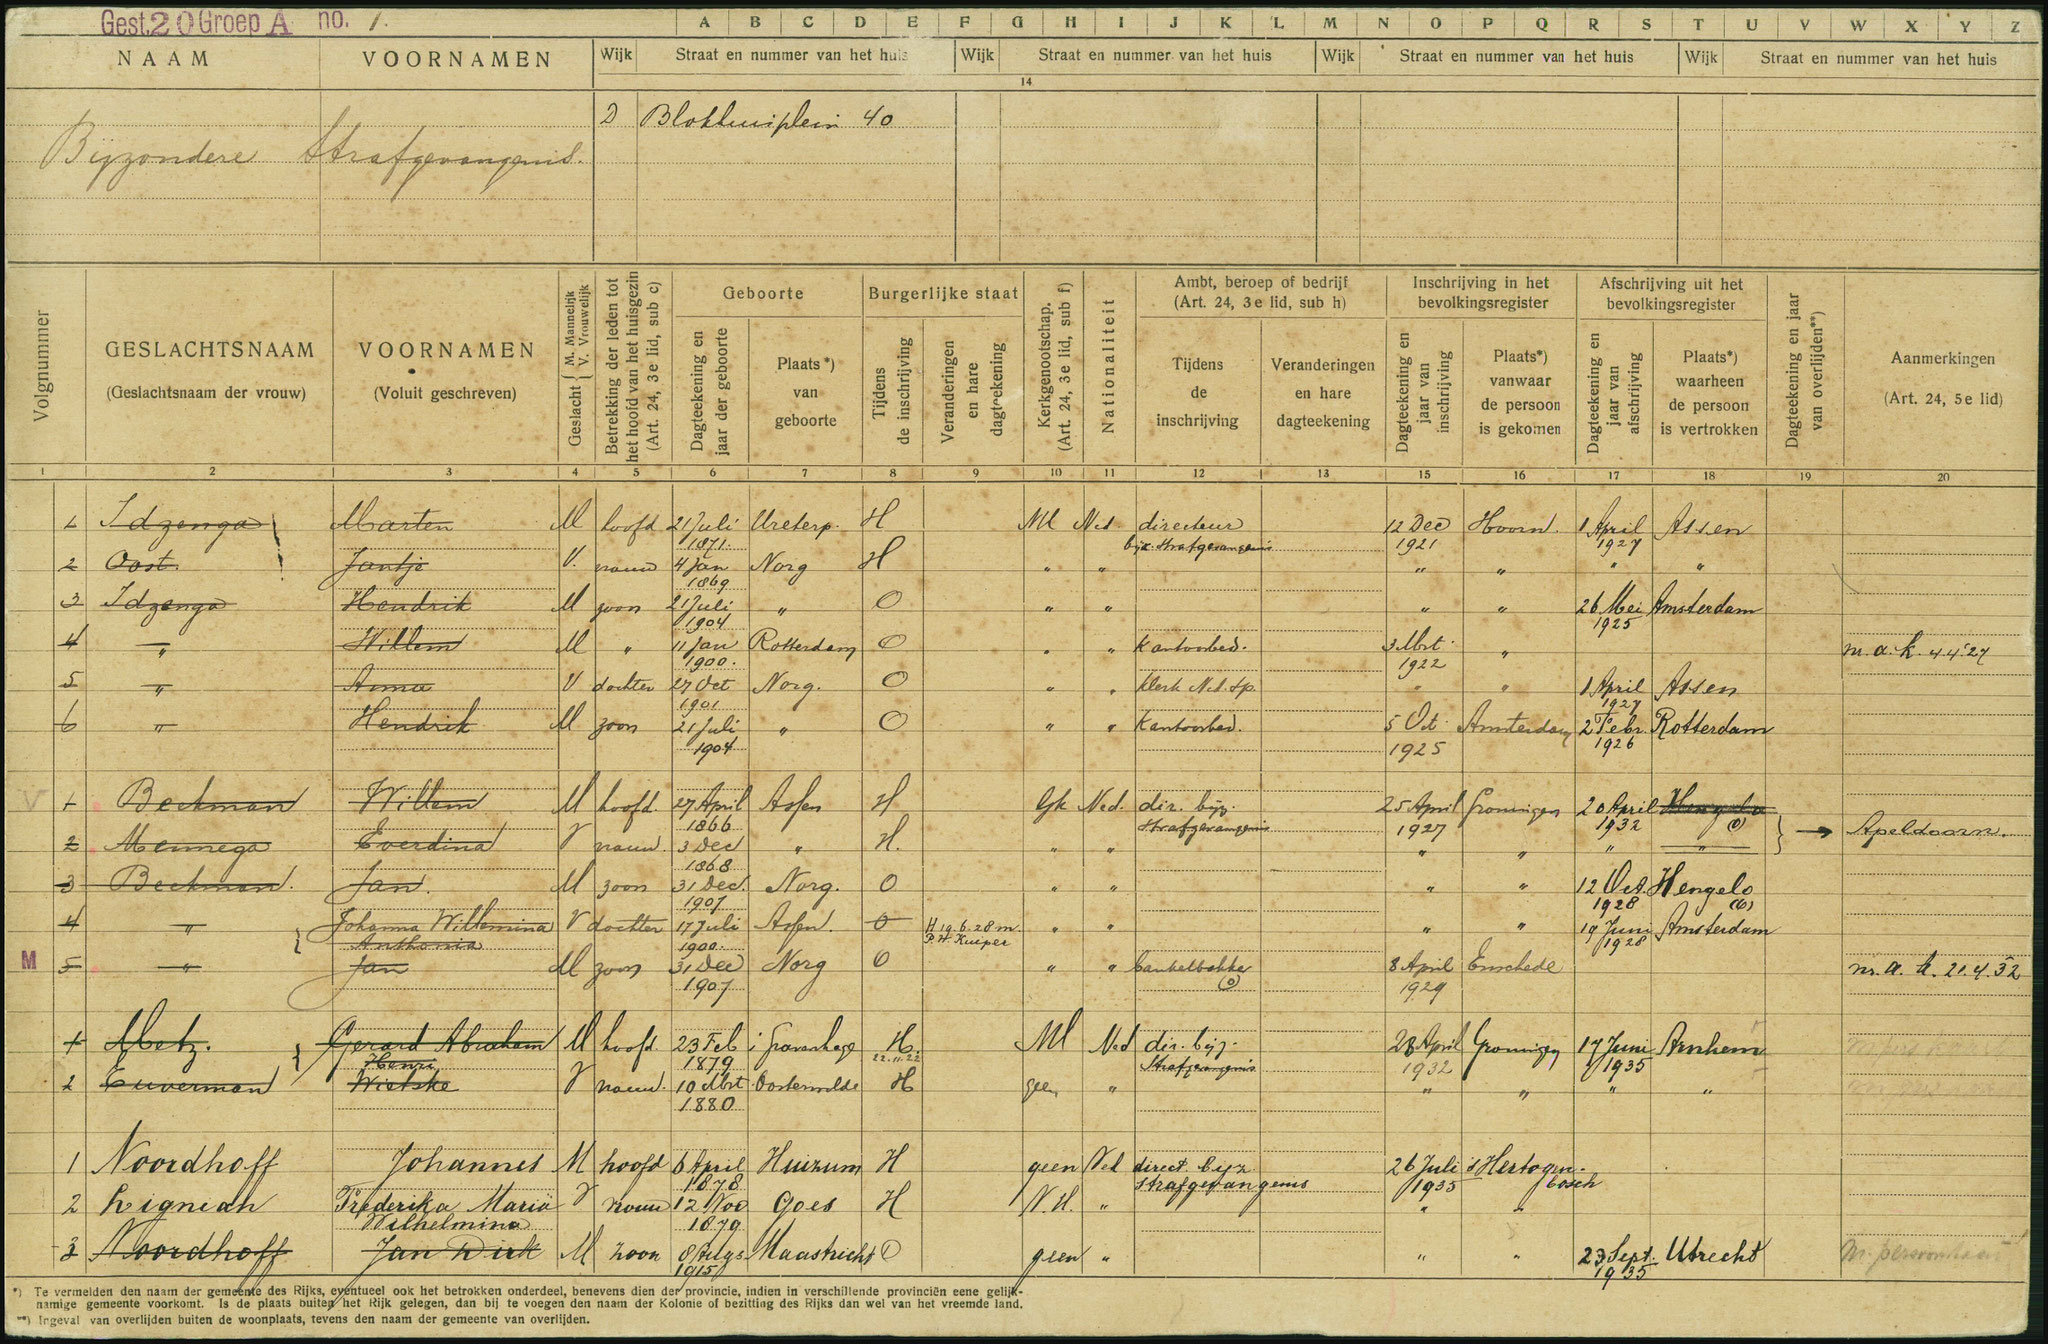 Gest. 20 Groep A no. 1.
A B C D E F G H I J K L M N O P Q R S T U V W X Y Z
NAAM VOORNAMEN Wijk Straat en nummer van het huis Wijk Straat en nummer van het huis Wijk Straat en nummer van het huis Wijk Straat en nummer van het huis
14
D Blokhuisplein 40
Bijzondere Strafgevangenis.
Volgnummer
GESLACHTSNAAM
(Geslachtsnaam der vrouw)
VOORNAMEN
(Voluit geschreven)
Geslacht { M. Mannelijk V. Vrouwelijk
Betrekking der leden tot het hoofd van het huisgezin (Art. 24, 3e lid, sub c)
Geboorte
Dagteekening en jaar der geboorte
Plaats*) van geboorte
Burgerlijke staat
Tijdens de inschrijving
Veranderingen en hare dagteekening
Kerkgenootschap. (Art. 24, 3e lid, sub f)
Nationaliteit
Ambt, beroep of bedrijf
(Art. 24, 3e lid, sub h)
Tijdens de inschrijving
Veranderingen en hare dagteekening
Inschrijving in het bevolkingsregister
Dagteekening en jaar van inschrijving
Plaats*) vanwaar de persoon is gekomen
Afschrijving uit het bevolkingsregister
Dagteekening en jaar van afschrijving
Plaats*) waarheen de persoon is vertrokken
Dagteekening en jaar van overlijden**)
Aanmerkingen
(Art. 24, 5e lid)
1 2 3 4 5 6 7 8 9 10 11 12 13 15 16 17 18 19 20
1 Idzenga Marten M hoofd 21 Juli 1871. Ureterp. H NH Ned directeur bijz. strafgevangenis 12 Dec 1921 Hoorn. 1 April 1927 Assen
2 Oost. Jantje V. vrouw 4 Jan 1869 Norg H " " " " " "
3 Idzenga Hendrik M zoon 21 Juli 1904 " O " " " " 26 Mei 1925 Amsterdam
4 " Willem M " 11 Jan 1900. Rotterdam O " " Kantoorbed. 3 Mrt 1922 " m.a.k. 4 4 '27
5 " Anna V dochter 27 Oct 1901 Norg. O " " Klerk Ned. Sp. " " 1 April 1927 Assen
6 " Hendrik M zoon 21 Juli 1904 " O " " Kantoorbed. 5 Oct 1925 Amsterdam 2 Febr. 1926 Rotterdam
V 1 Beekman Willem M hoofd. 27 April 1866 Assen H Gk Ned. dir. bijz. strafgevangenis 25 April 1927 Groningen 20 April 1932 Hengelo (O) } → Apeldoorn.
2 Mennega Everdina V vrouw. 3 Dec 1868 " H. " " " " " "
3 Beekman. Jan. M zoon 31 Dec. 1907 Norg. O " " " " 12 Oct. 1928 Hengelo (O)
4 " Johanna Willemina Anthonia V dochter 17 Juli 1900. Assen. O H 19.6.28 m. P.H. Kuiper " " " " 19 Juni 1928 Amsterdam
M 5 " Jan M zoon 31 Dec 1907 Norg O " " banketbakker (O) 8 April 1929 Enschede m.a.k. 21.4.32
1 Metz. Gerard Abraham Henri M hoofd. 23 Feb 1879 's Gravenhage H. 22.11.22 NH Ned dir. bijz. Strafgevangenis 28 April 1932 Groningen 17 Juni 1935 Arnhem
2 Euverman Wietske V vrouw. 10 Mrt 1880 Oosterwolde H geen " " " " "
1 Noordhoff Johannes M hoofd 6 April 1878 Huizum H geen Ned direct. bijz strafgevangenis 26 Juli 1935 's Hertogenbosch
2 Lignian Frederika Maria Wilhelmina V vrouw 12 Nov 1879 Goes H N.H. " " "
3 Noordhoff Jan Dirk M zoon 8 Augs 1915 Maastricht O geen " " " 23 Sept. 1935 Utrecht
*) Te vermelden den naam der gemeente des Rijks, eventueel ook het betrokken onderdeel, benevens dien der provincie, indien in verschillende provinciën eene gelijk-
namige gemeente voorkomt. Is de plaats buiten het Rijk gelegen, dan bij te voegen den naam der Kolonie of bezitting des Rijks dan wel van het vreemde land.
**) Ingeval van overlijden buiten de woonplaats, tevens den naam der gemeente van overlijden.